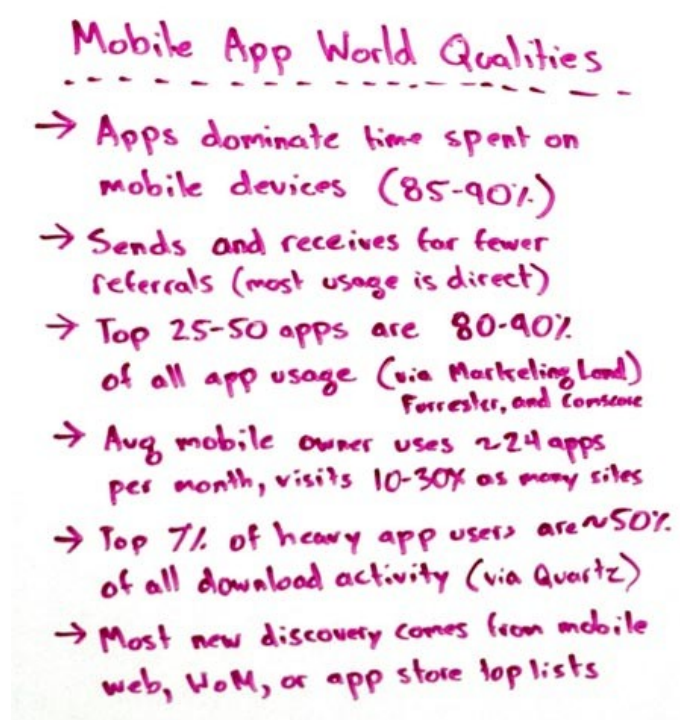 Mobile App World Qualities
→ Apps dominate time spent on
mobile devices (85-90%)
→ Sends and receives far fewer
referrals (most usage is direct)
→ Top 25-50 apps are 80-90%
of all app usage (via Marketing Land)
Forrester, and Comscore
→ Avg mobile owner uses ~24 apps
per month, visits 10-30% as many sites
→ Top 7% of heavy app users are ~50%
of all download activity (via Quartz)
→ Most new discovery comes from mobile
web, WoM, or app store top lists